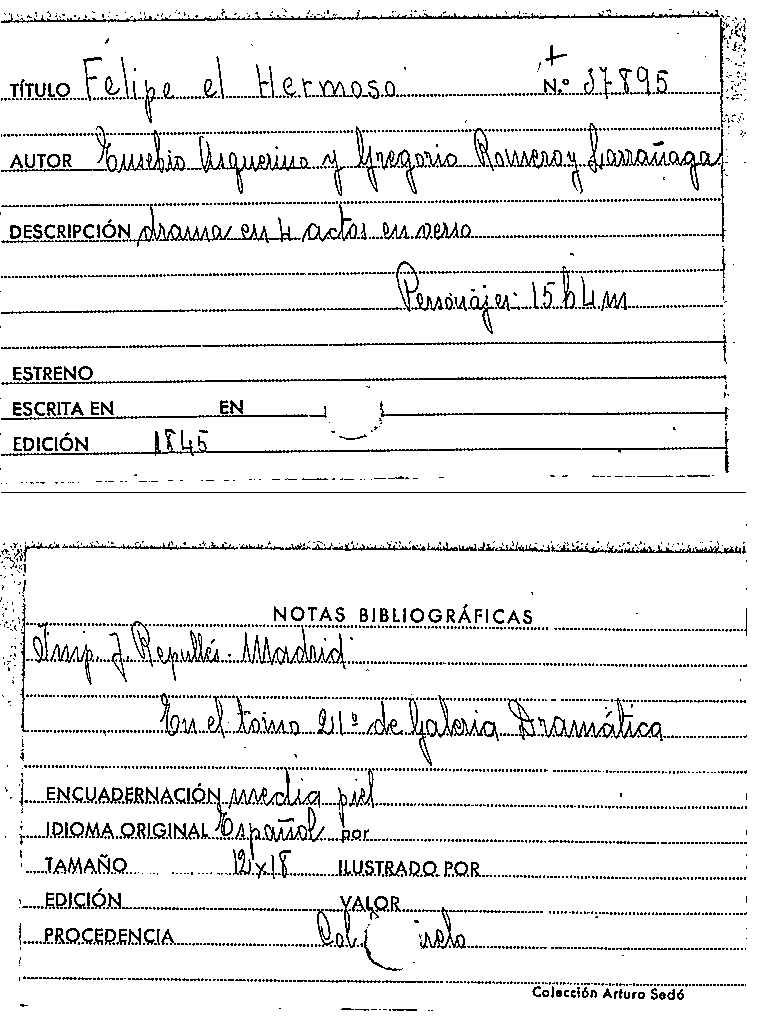 TÍTULO Felipe el Hermoso N.º 37895
AUTOR Eusebio Asquerino y Gregorio Romero y Larrañaga
DESCRIPCIÓN drama en 4 actos en verso
Personajes: 15 h 4 m
ESTRENO
ESCRITA EN EN
EDICIÓN 1845
NOTAS BIBLIOGRÁFICAS
Imp. J. Repullés. Madrid
En el tomo 21º de Galeria Dramática
ENCUADERNACIÓN media piel
IDIOMA ORIGINAL Español por
TAMAÑO 12x18 ILUSTRADO POR
EDICIÓN VALOR
PROCEDENCIA Col.
Colección Arturo Sedó